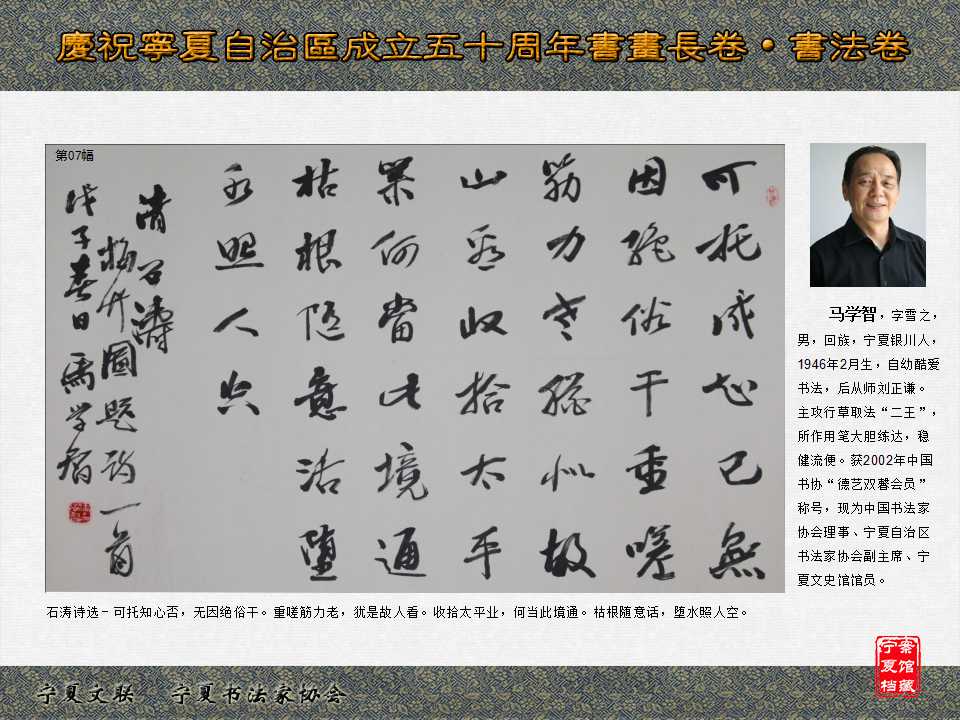 慶祝寧夏自治區成立五十周年書畫長卷·書法卷
第07幅
可托成心已無
因絶俗干重嗟
筋力老猶似故
山看收拾太平
業何當此境通
枯根隨意活墮
水照人空
清石濤
梅竹圖題詩一首
戊子春日馬學智
马学智，字雪之，
男，回族，宁夏银川人，
1946年2月生，自幼酷爱
书法，后从师刘正谦。
主攻行草取法“二王”，
所作用笔大胆练达，稳
健流便。获2002年中国
书协“德艺双馨会员”
称号，现为中国书法家
协会理事、宁夏自治区
书法家协会副主席、宁
夏文史馆馆员。
石涛诗选－可托知心否，无因绝俗干。重嗟筋力老，犹是故人看。收拾太平业，何当此境通。枯根随意话，堕水照人空。
宁夏档案馆藏
宁夏文联 宁夏书法家协会